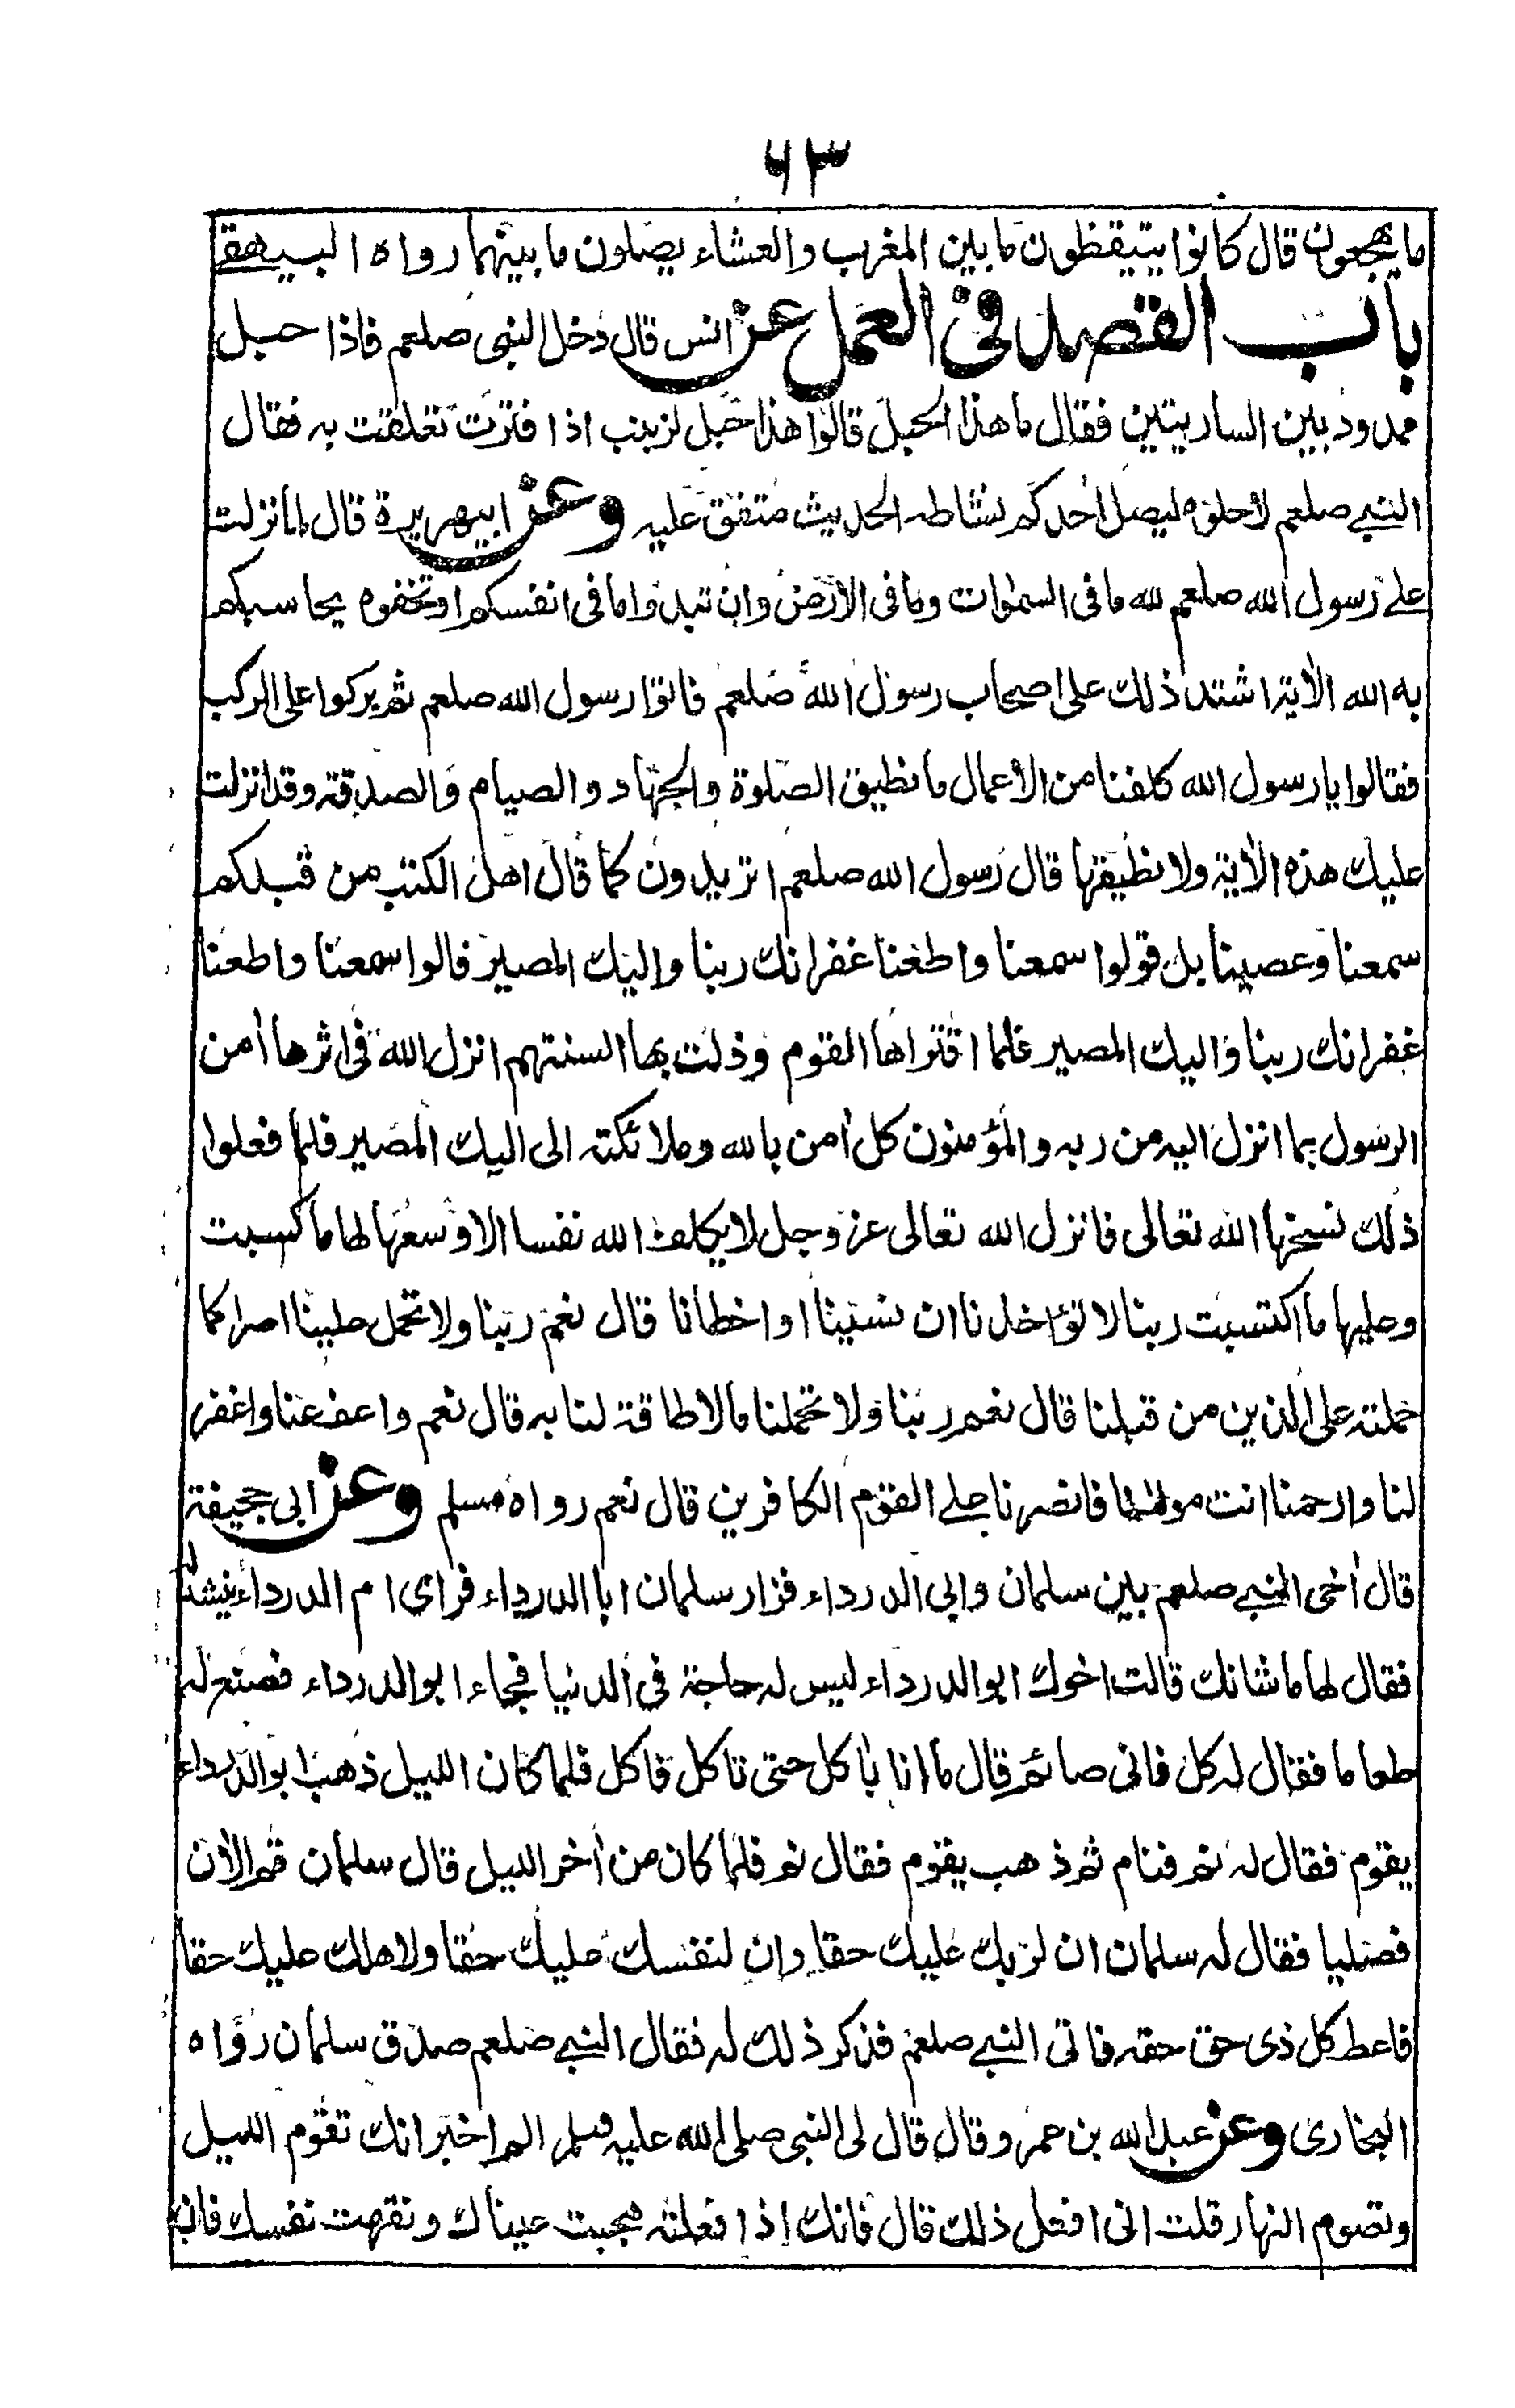 ٦٣
ما يهجعون قال كانوا يتيقظون ما بين المغرب والعشاء يصلون ما بينهما رواه البيهقے
باب القصد فى العمل عن انس قال دخل النبى صلعم فاذا حبل
ممدود بين الساريتين فقال ما هذا الحبل قالوا هذا حبل لزينب اذا فترت تعلقت به فقال
النبے صلعم لا حلوه ليصل احدكم نشاطه الحديث متفق عليه وعن ابيهريرة قال لما نزلت
علے رسول الله صلعم لله ما فى السموات وما فى الارض وان تبدوا ما فى انفسكم او تخفوه يحاسبكم
به الله الاية اشتد ذلك على اصحاب رسول الله صلعم فاتوا رسول الله صلعم ثم بركوا على الركب
فقالوا يا رسول الله كلفنا من الاعمال ما نطيق الصلوة والجهاد والصيام والصدقة وقد انزلت
عليك هذه الاية ولا نطيقها قال رسول الله صلعم اتريدون كما قال اهل الكتب من قبلكم
سمعنا وعصينا بل قولوا سمعنا واطعنا غفرانك ربنا واليك المصير قالوا سمعنا واطعنا
غفرانك ربنا واليك المصير فلما اقتراها القوم وذلت بها السنتهم انزل الله فى اثرها امن
الرسول بما انزل اليه من ربه والمؤمنون كل امن بالله وملائكته الى اليك المصير فلما فعلوا
ذلك نسخها الله تعالى فانزل الله تعالى عز وجل لا يكلف الله نفسا الا وسعها لها ما كسبت
وعليها ما اكتسبت ربنا لا تؤاخذنا ان نسينا او اخطانا قال نعم ربنا ولا تحمل علينا اصرا كما
حملته على الذين من قبلنا قال نعم ربنا ولا تحملنا ما لا طاقة لنا به قال نعم واعف عنا واغفر
لنا وارحمنا انت مولنا فانصرنا علے القوم الكافرين قال نعم رواه مسلم وعن ابى جحيفة
قال اخى النبے صلعم بين سلمان وابى الدرداء فزار سلمان ابا الدرداء فراى ام الدرداء
فقال لها ما شانك قالت اخوك ابو الدرداء ليس له حاجة فى الدنيا فجاء ابو الدرداء فصنع له
طعاما فقال له كل فانى صائم قال ما انا باكل حتى تاكل فاكل فلما كان الليل ذهب ابو الدرداء
يقوم فقال له نم فنام ثم ذهب يقوم فقال نم فلما كان من اخر الليل قال سلمان قم الان
فصليا فقال له سلمان ان لربك عليك حقا وان لنفسك عليك حقا ولاهلك عليك حقا
فاعط كل ذى حق حقه فاتى النبے صلعم فذكر ذلك له فقال النبے صلعم صدق سلمان رواه
البخارى وعن عبد الله بن عمر وقال قال لى النبى صلى الله عليه وسلم الم اخبر انك تقوم الليل
وتصوم النهار قلت انى افعل ذلك قال فانك اذا فعلته هجمت عيناك ونقهت نفسك